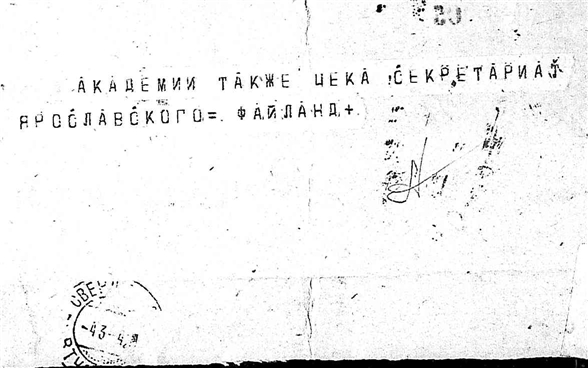 АКАДЕМИИ ТАКЖЕ ЦЕКА СЕКРЕТАРИАТ
ЯРОСЛАВСКОГО= ФАЙЛАНД+
-43-4